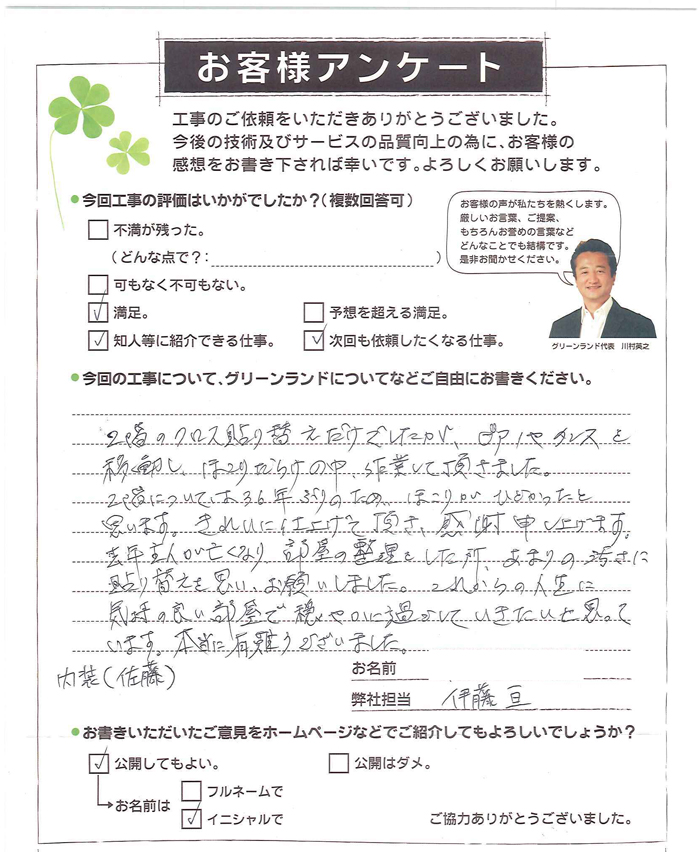 お客様アンケート
工事のご依頼をいただきありがとうございました。
今後の技術及びサービスの品質向上の為に、お客様の
感想をお書き下されば幸いです。よろしくお願いします。
●今回工事の評価はいかがでしたか?(複数回答可)
お客様の声が私たちを熱くします。
厳しいお言葉、ご提案、
もちろんお誉めの言葉など
どんなことでも結構です。
是非お聞かせください。
グリーンランド代表 川村英之
不満が残った。
(どんな点で?: )
可もなく不可もない。
満足。 予想を超える満足。
知人等に紹介できる仕事。 次回も依頼したくなる仕事。
●今回の工事について、グリーンランドについてなどご自由にお書きください。
2階のクロス貼り替えだけでしたが、ピアノやタンスを
移動し、ほこりだらけの中、作業して頂きました。
2階については36年ぶりのため、ほこりがひどかったと
思います。きれいに仕上げて頂き、感謝申し上げます。
去年主人が亡くなり、部屋の整理をした所、あまりの汚さに
貼り替えを思い、お願いしました。これからの人生に
気持の良い部屋で穏やかに過ごしていきたいと思って
います。本当に有難うございました。
内装(佐藤)
お名前
弊社担当 伊藤 亘
●お書きいただいたご意見をホームページなどでご紹介してもよろしいでしょうか?
公開してもよい。 公開はダメ。
お名前は フルネームで
イニシャルで
ご協力ありがとうございました。